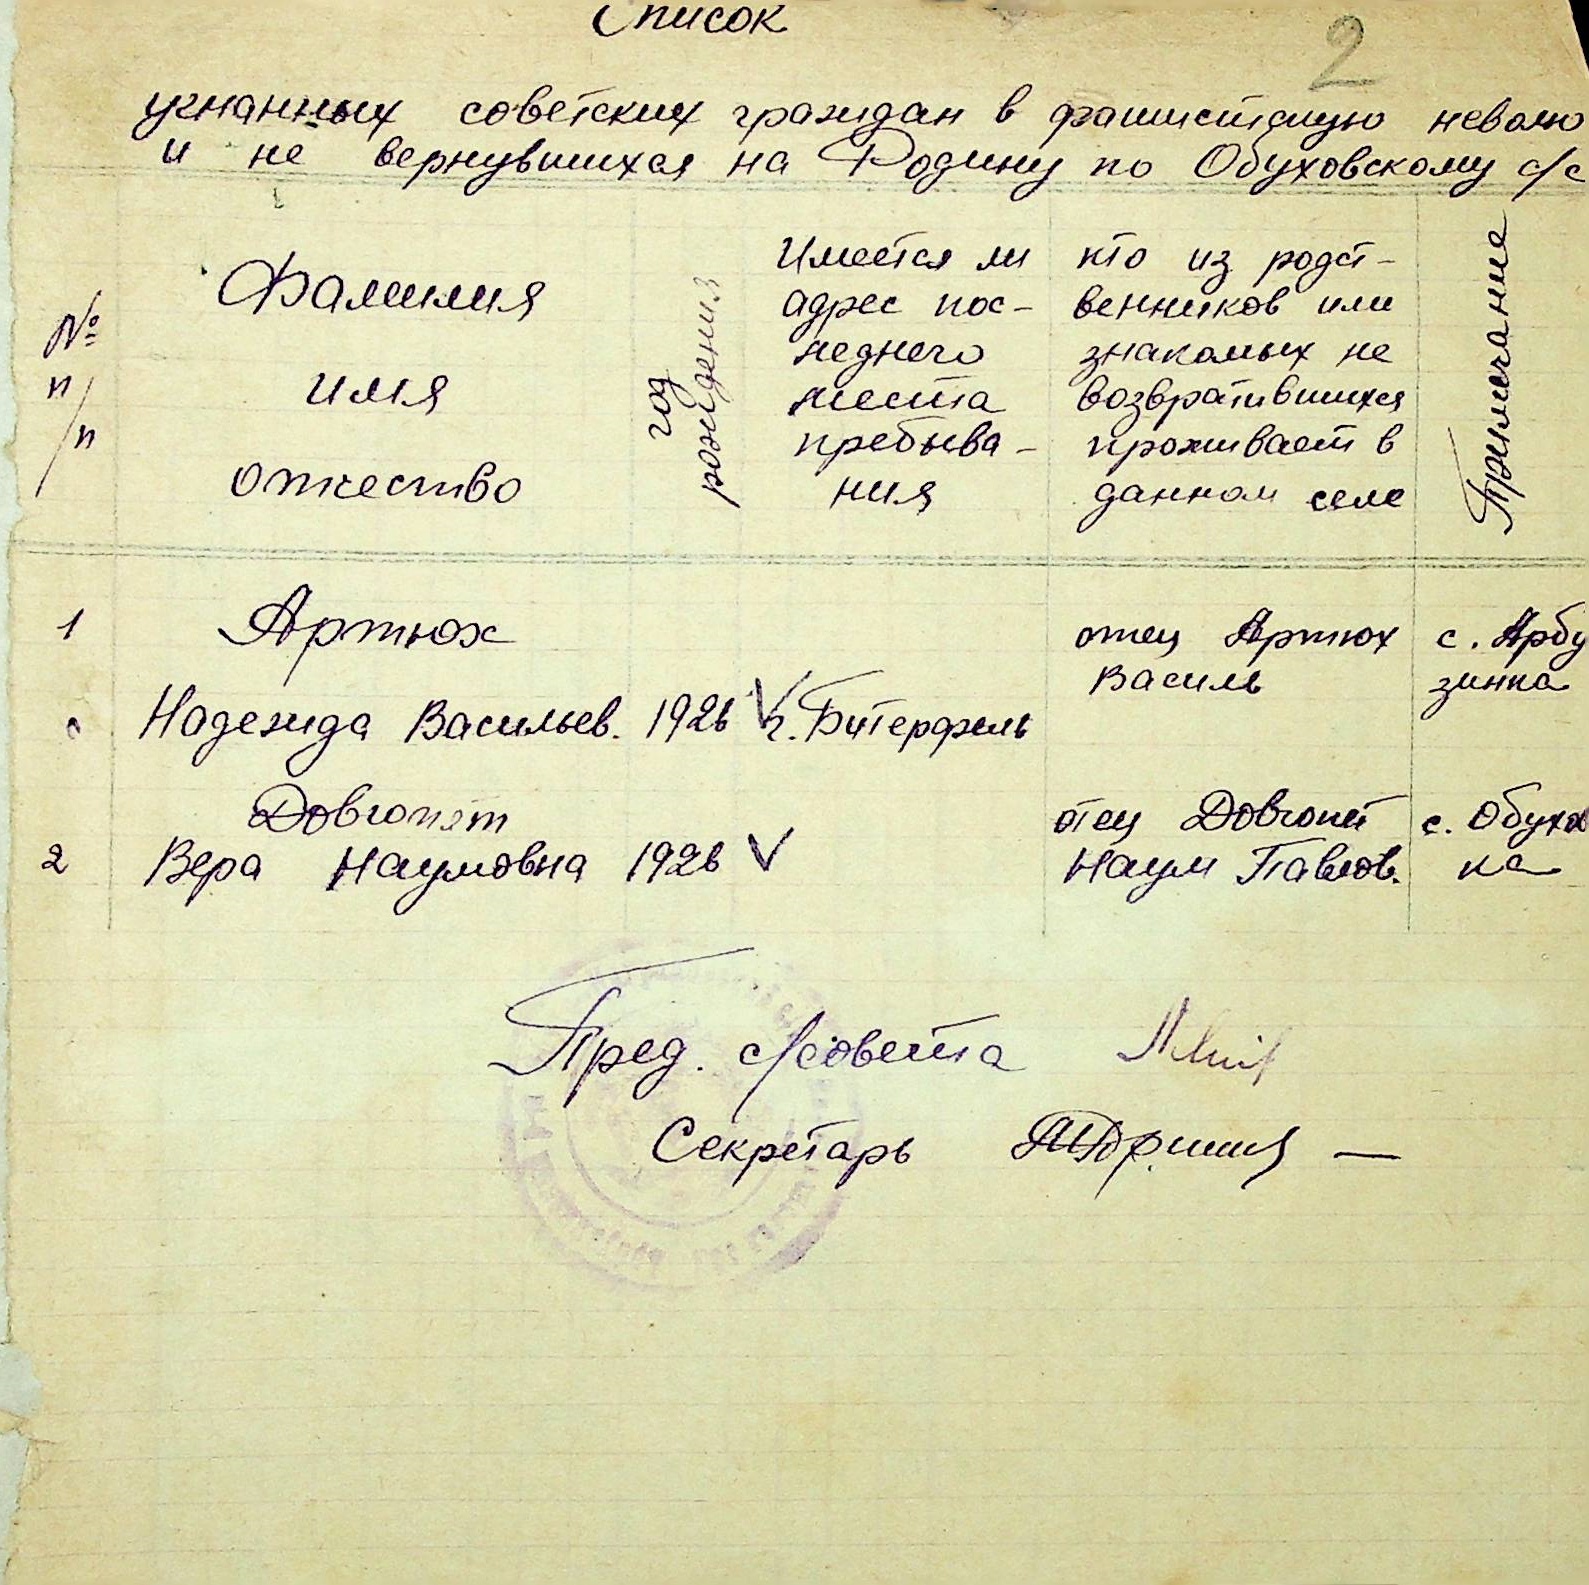 Список
2
угнанных советских граждан в фашистскую неволю
и не вернувшихся на Родину по Обуховскому с/с
№ п/п
Фамилия
имя
отчество
год рождения
Имеется ли
адрес пос-
леднего
места
пребыва-
ния
кто из родст-
венников или
знакомых не
возвратившихся
проживает в
данном селе
Примечание
1
Артюх
Надежда Васильев. 1926 V г. Битерфель
отец Артюх
Василь
с. Арбу
зинка
2
Довгопят
Вера Наумовна 1926 V
отец Довгопят
Наум Павлов.
с. Обухов
ка
Пред. с/совета
Секретарь